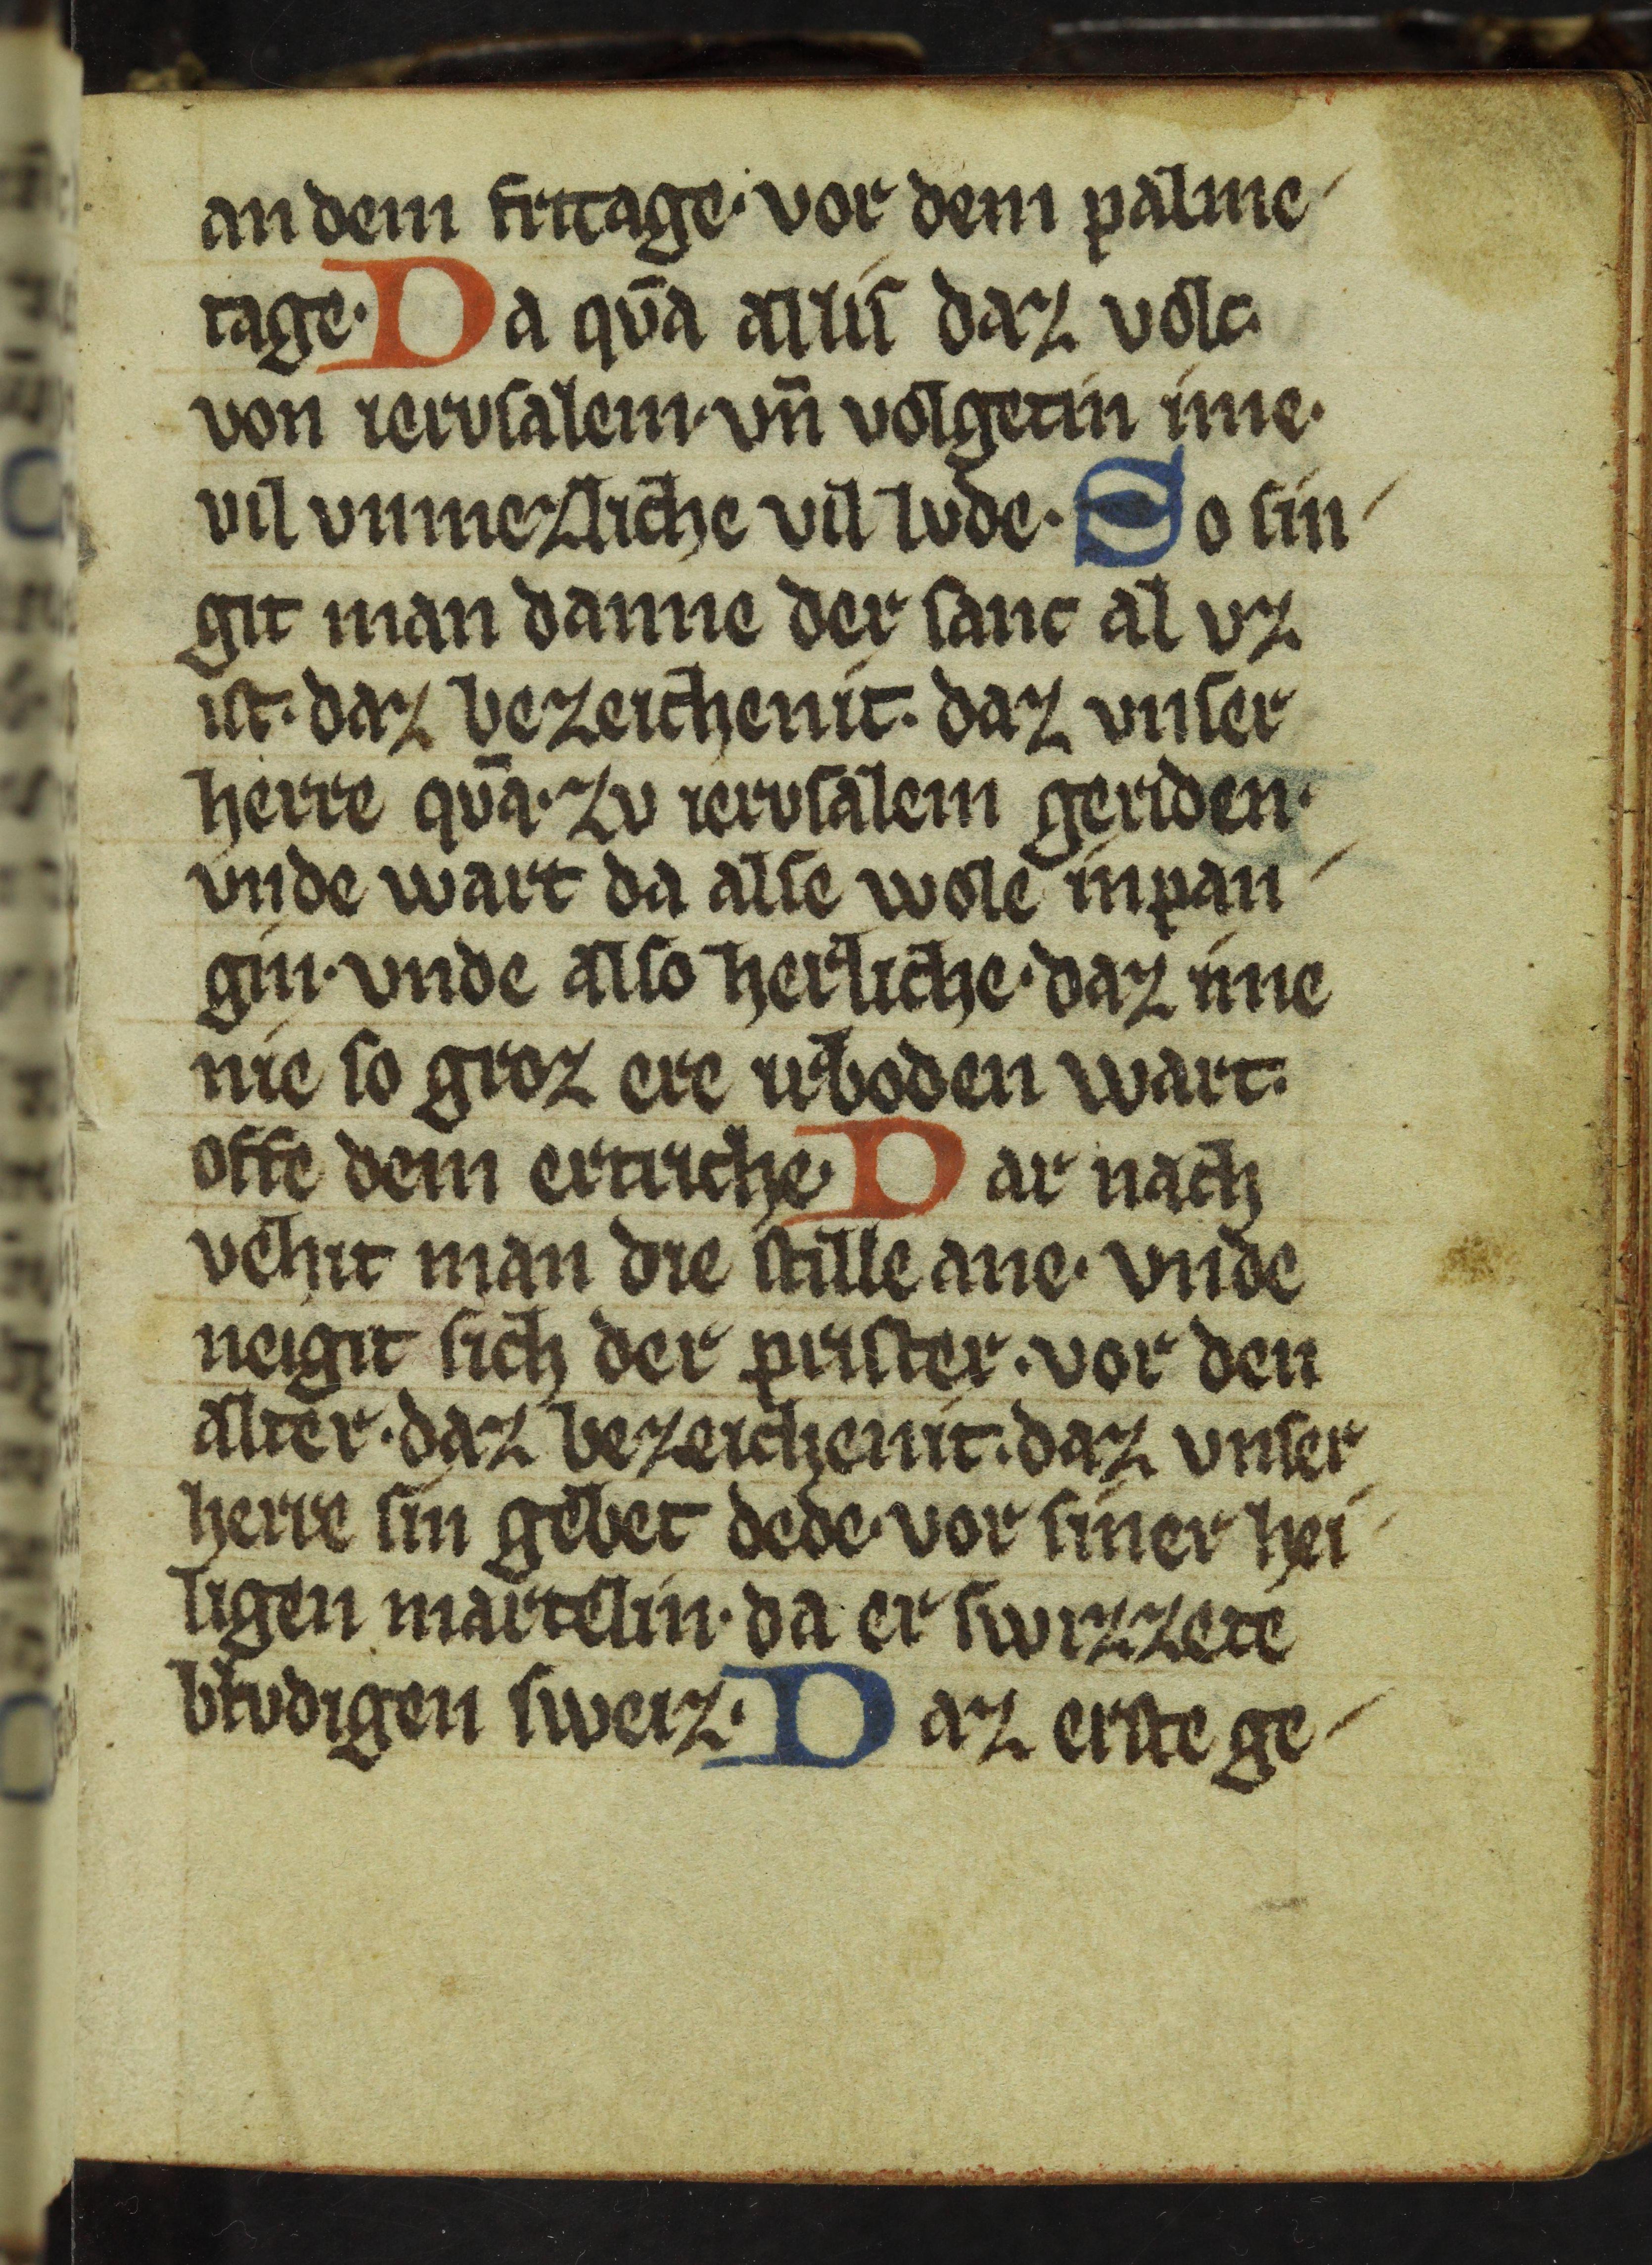 an dem fritage· vor dem palme-
tage· Da qua̅ alliſ daz volc
von ieruſalem· vn̄ volgetin ime·
vil vnmezliche vil lude· So ſin-
git man danne der ſanc al vz
iſt· daz bezeichenit· daz vnſer
herre qua̅· zv ieruſalem geriden·
vnde wart da alſe wole inpan-
gin· vnde alſo herliche· daz ime
nie ſo groz ere irboden wart·
offe dem ertriche· Dar nach
vehit man die ſtille ane· vnde
neigit ſich der priſter· vor den
alter· daz bezeichenit· daz vnſer
herre ſin gebet dede· vor ſiner hei-
ligen martelin· da er ſwizzete
blvdigen ſweiz· Daz erſte ge-